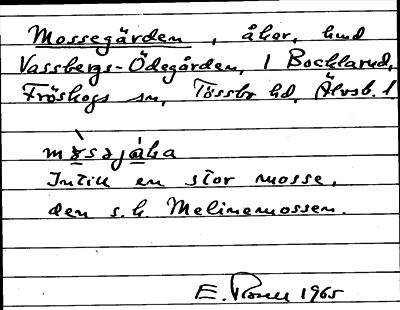 Mossegärden, åker, hmd
Vassbergs-Ödegården, 1 Bocklarud,
Fröskogs sn, Tössbo hd, Älvsb. l
mo̱səjäka
Intill en stor mosse,
den s.k Melinemossen.
E. 1965